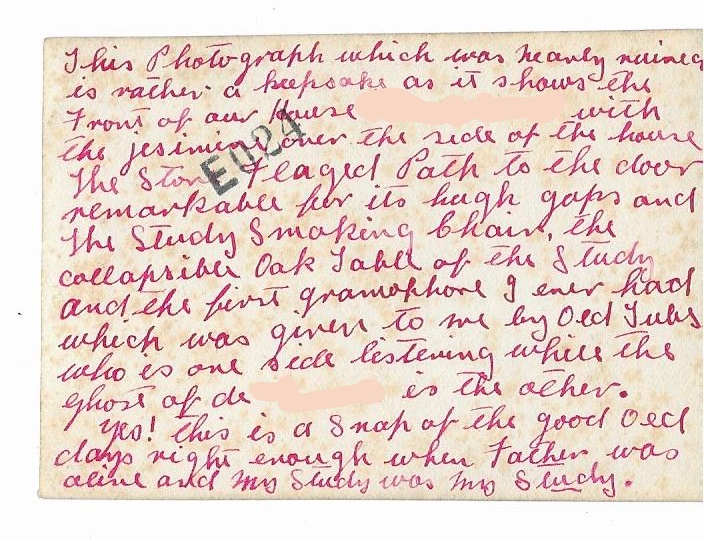 This Photograph which was nearly ruined
is rather a keepsake as it shows the
Front of our House with
the jesimin over the side of the house
The Ston Flaged Path to the door
remarkable for its hugh gaps and
The Study Smoking Chair, the
collapsible Oak Table of the Study
and the first gramophone I ever had
which was given to me by Oed Tubs
who is one side listening while the
ghost of de is the other.
Yes! this is a Snap of the good Oed
days right enough when Father was
alive and my Study was my Study.
E024